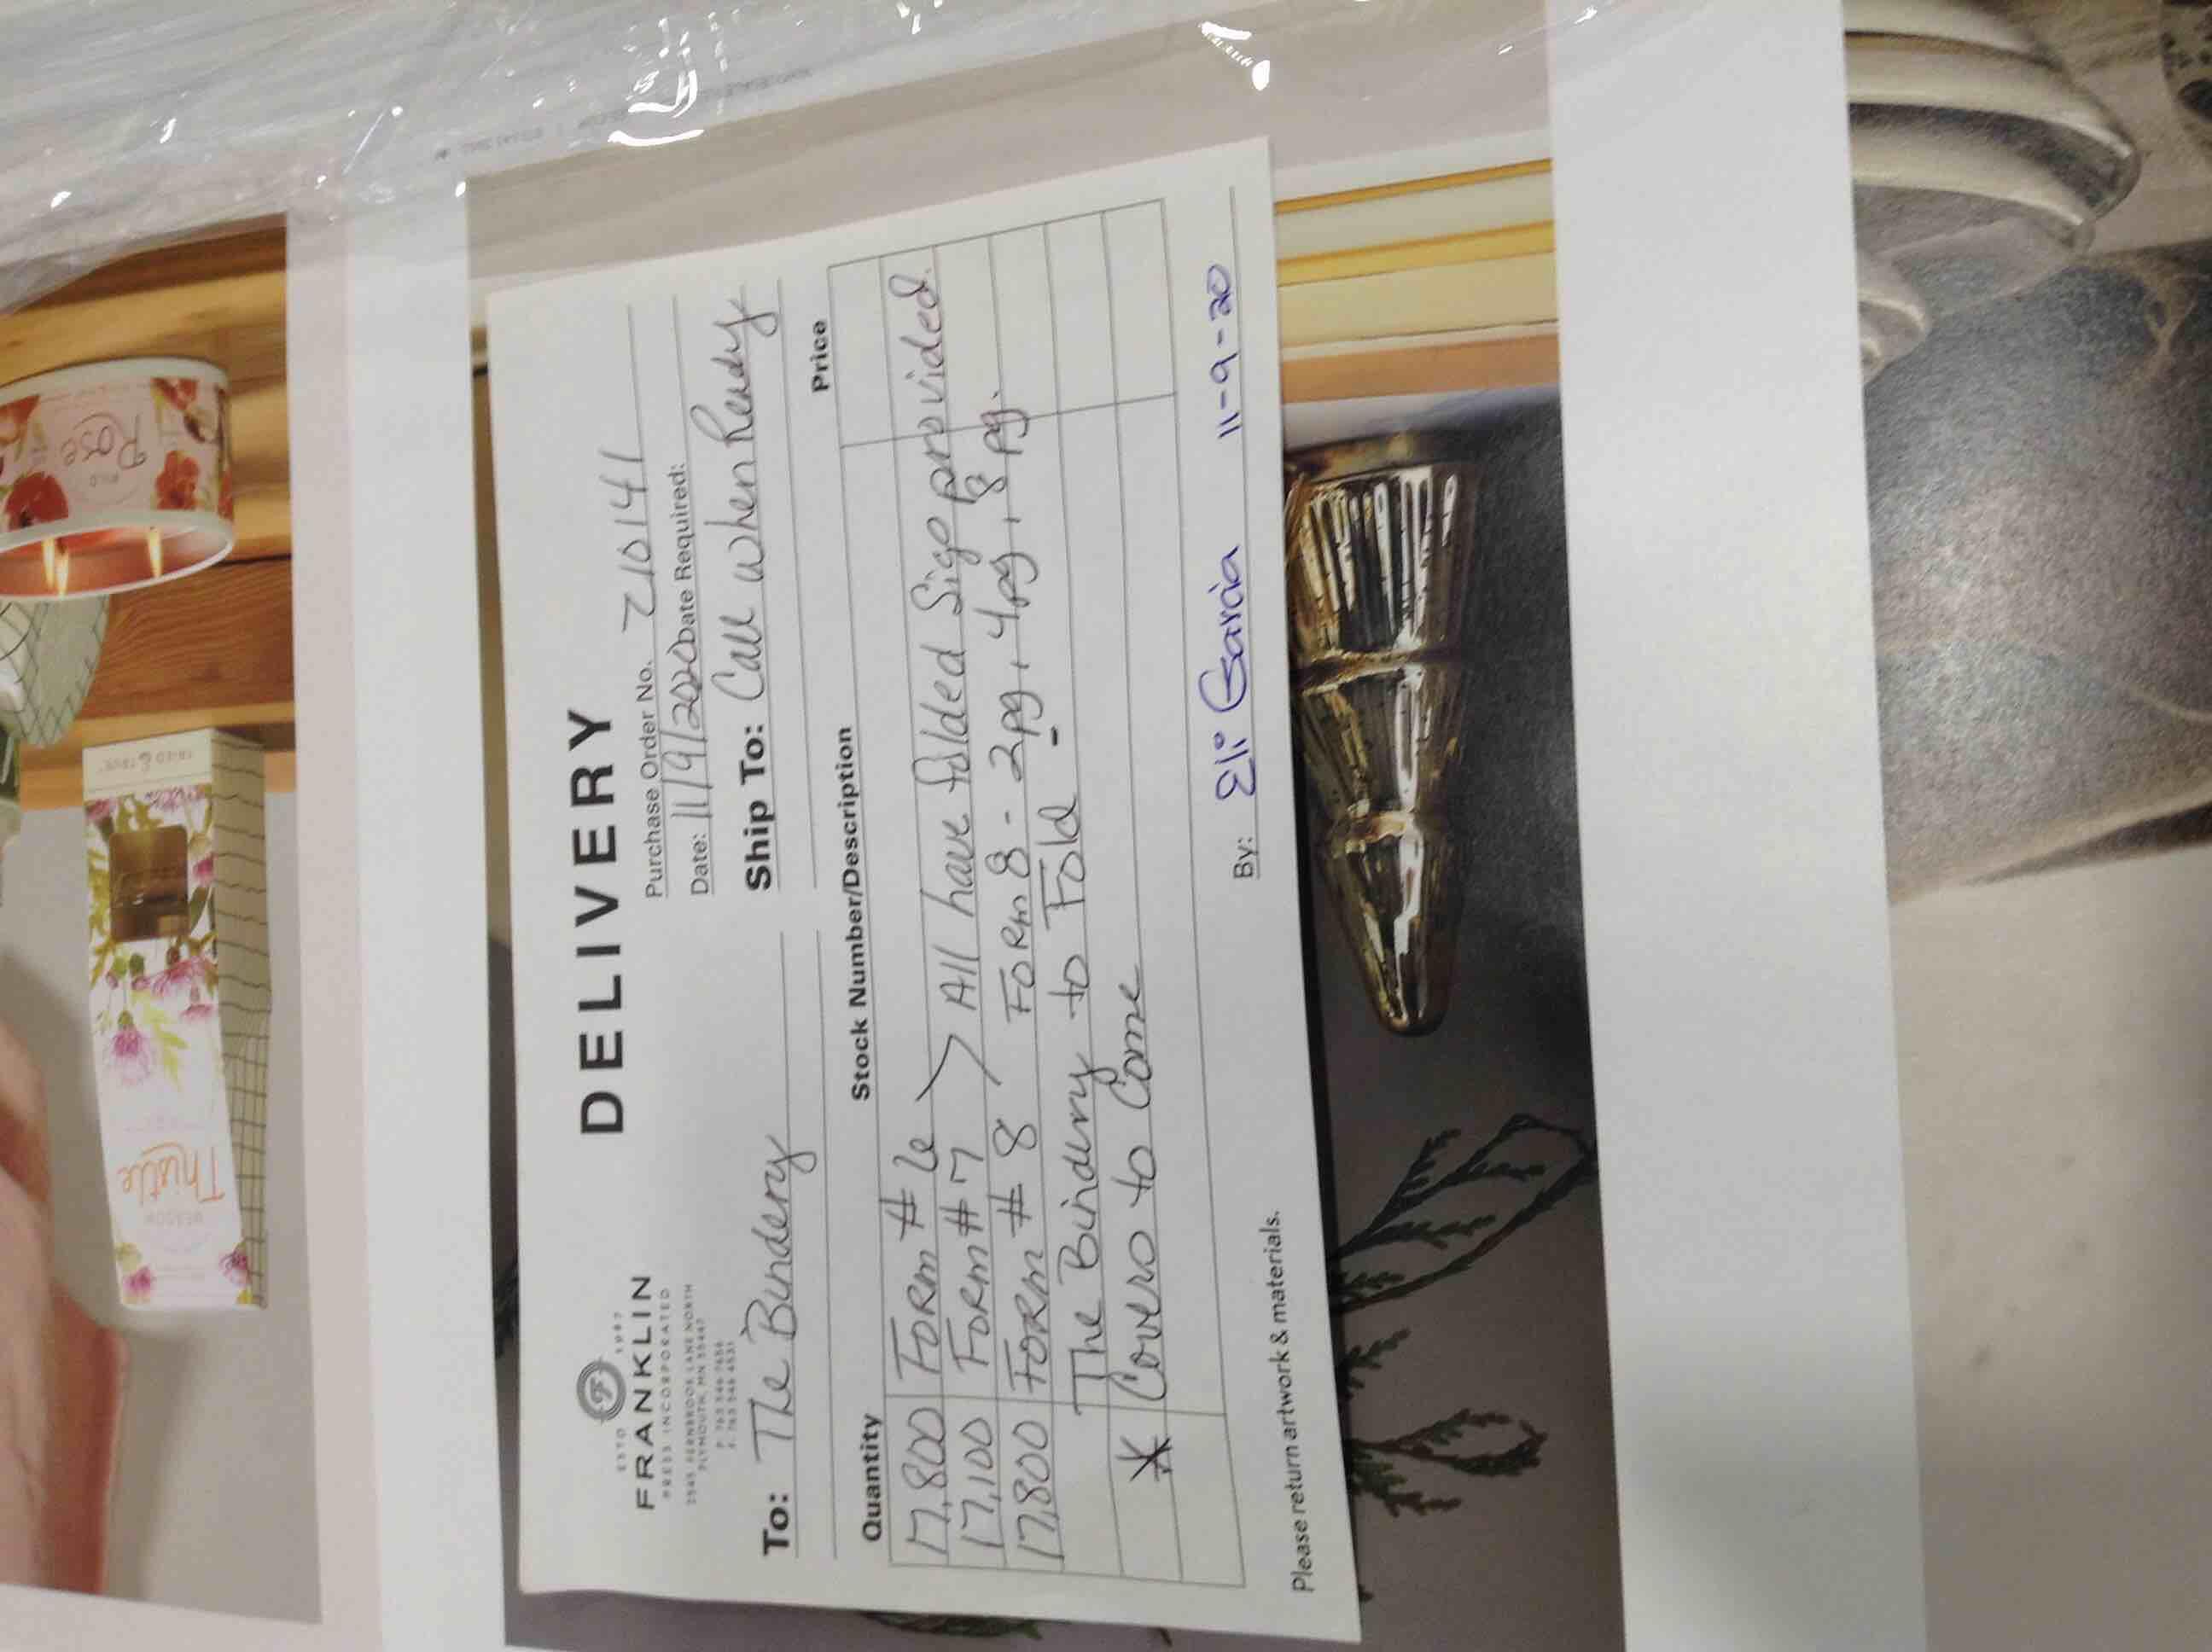 ESTD 1987
FRANKLIN
PRESS INCORPORATED
PLYMOUTH, MN 55447
DELIVERY
Purchase Order No. 210141
Date: 11/9/2020 Date Required:
To: The Bindery
Ship To: Call when Ready
Quantity Stock Number/Description Price
17,800 Form # 6
17,100 Form # 7 > All have folded Sigs provided.
17,800 Form # 8 Form 8 - 2pg, 4pg, 8pg.
The Bindery to Fold -
* Covers to Come
By: Eli Garcia 11-9-20
Please return artwork & materials.
WILD
Rose
MEADOW
Thistle
TRIED & TRUE